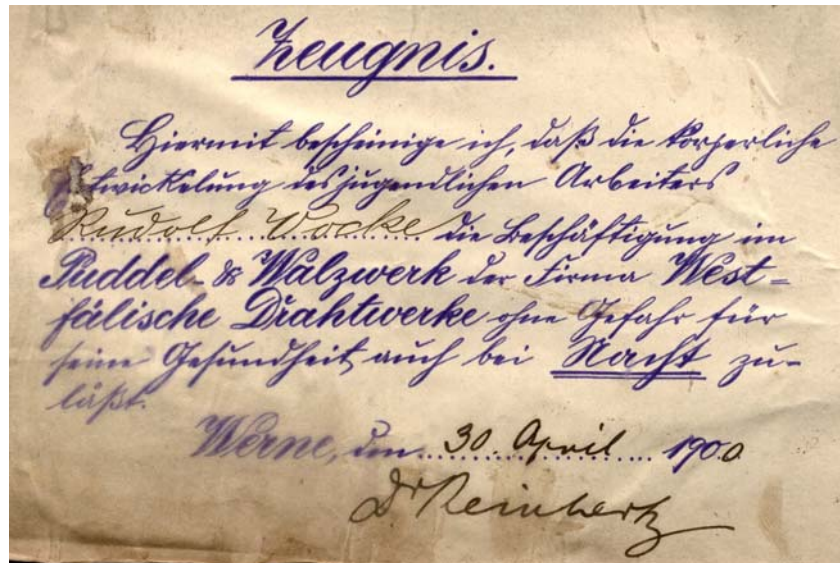 Zeugnis.
Hiermit bescheinige ich, daß die körperliche
Entwickelung des jugendlichen Arbeiters
Rudolf Wocke die Beschäftigung im
Puddel- & Walzwerk der Firma West-
fälische Drahtwerke ohne Gefahr für
seine Gesundheit auch bei Nacht zu-
läßt.
Werne, den 30. April 1900
Dr Reinhertz